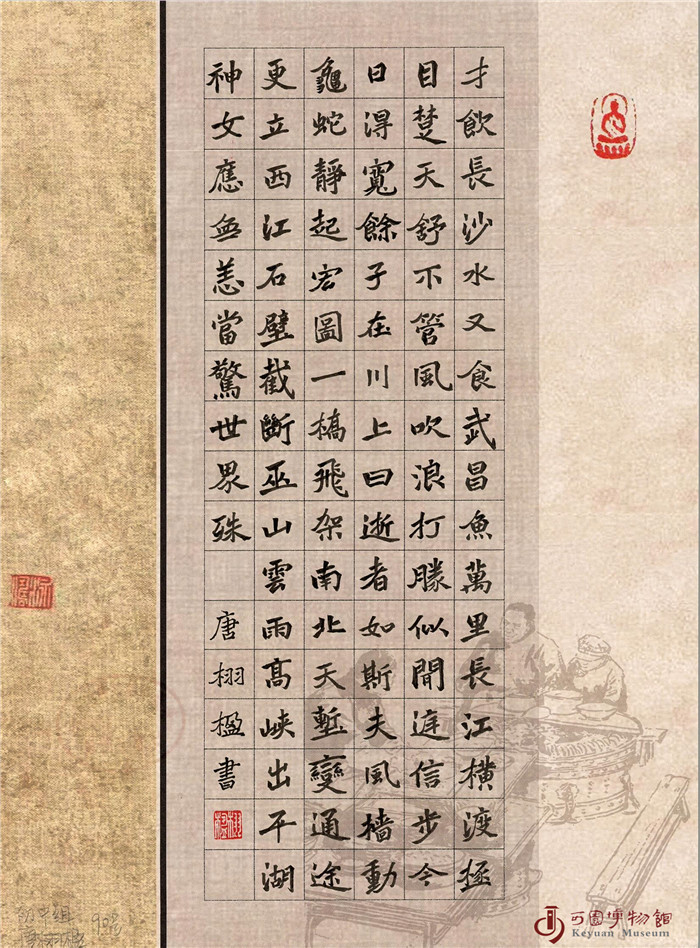 才飲長沙水又食武昌魚萬里長江橫渡極
目楚天舒不管風吹浪打勝似閒庭信步今
日得寬餘子在川上曰逝者如斯夫風檣動
龜蛇靜起宏圖一橋飛架南北天塹變通途
更立西江石壁截斷巫山雲雨高峽出平湖
神女應無恙當驚世界殊
唐栩楹書
可園博物館
Keyuan Museum